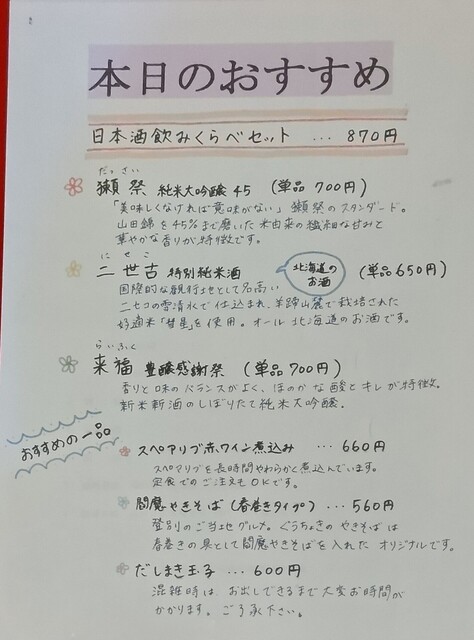 本日のおすすめ
日本酒飲みくらべセット … 870円
だっさい
獺祭 純米大吟醸 45 (単品 700円)
「美味しくなければ意味がない」獺祭のスタンダード。
山田錦を45%まで磨いた米由来の繊細な甘みと
華やかな香りが特徴です。
にせこ
二世古 特別純米酒
北海道の
お酒
(単品 650円)
国際的な観光地として名高い
ニセコの雪清水で仕込まれ、羊蹄山麓で栽培された
好適米「彗星」を使用。オール北海道のお酒です。
らいふく
来福 豊醸感謝祭 (単品 700円)
香りと味のバランスがよく、ほのかな酸とキレが特徴。
新米新酒のしぼりたて純米大吟醸.
おすすめの一品
スペアリブ赤ワイン煮込み … 660円
スペアリブを長時間やわらかく煮込んでいます。
定食でのご注文もOKです。
閻魔やきそば (春巻きタイプ) … 560円
登別のご当地グルメ。ぐうちょきの やきそばは
春巻きの具として閻魔やきそばを入れた オリジナルです。
だしまき玉子 … 600円
混雑時は お出しできるまで大変お時間が
かかります。ご了承下さい。